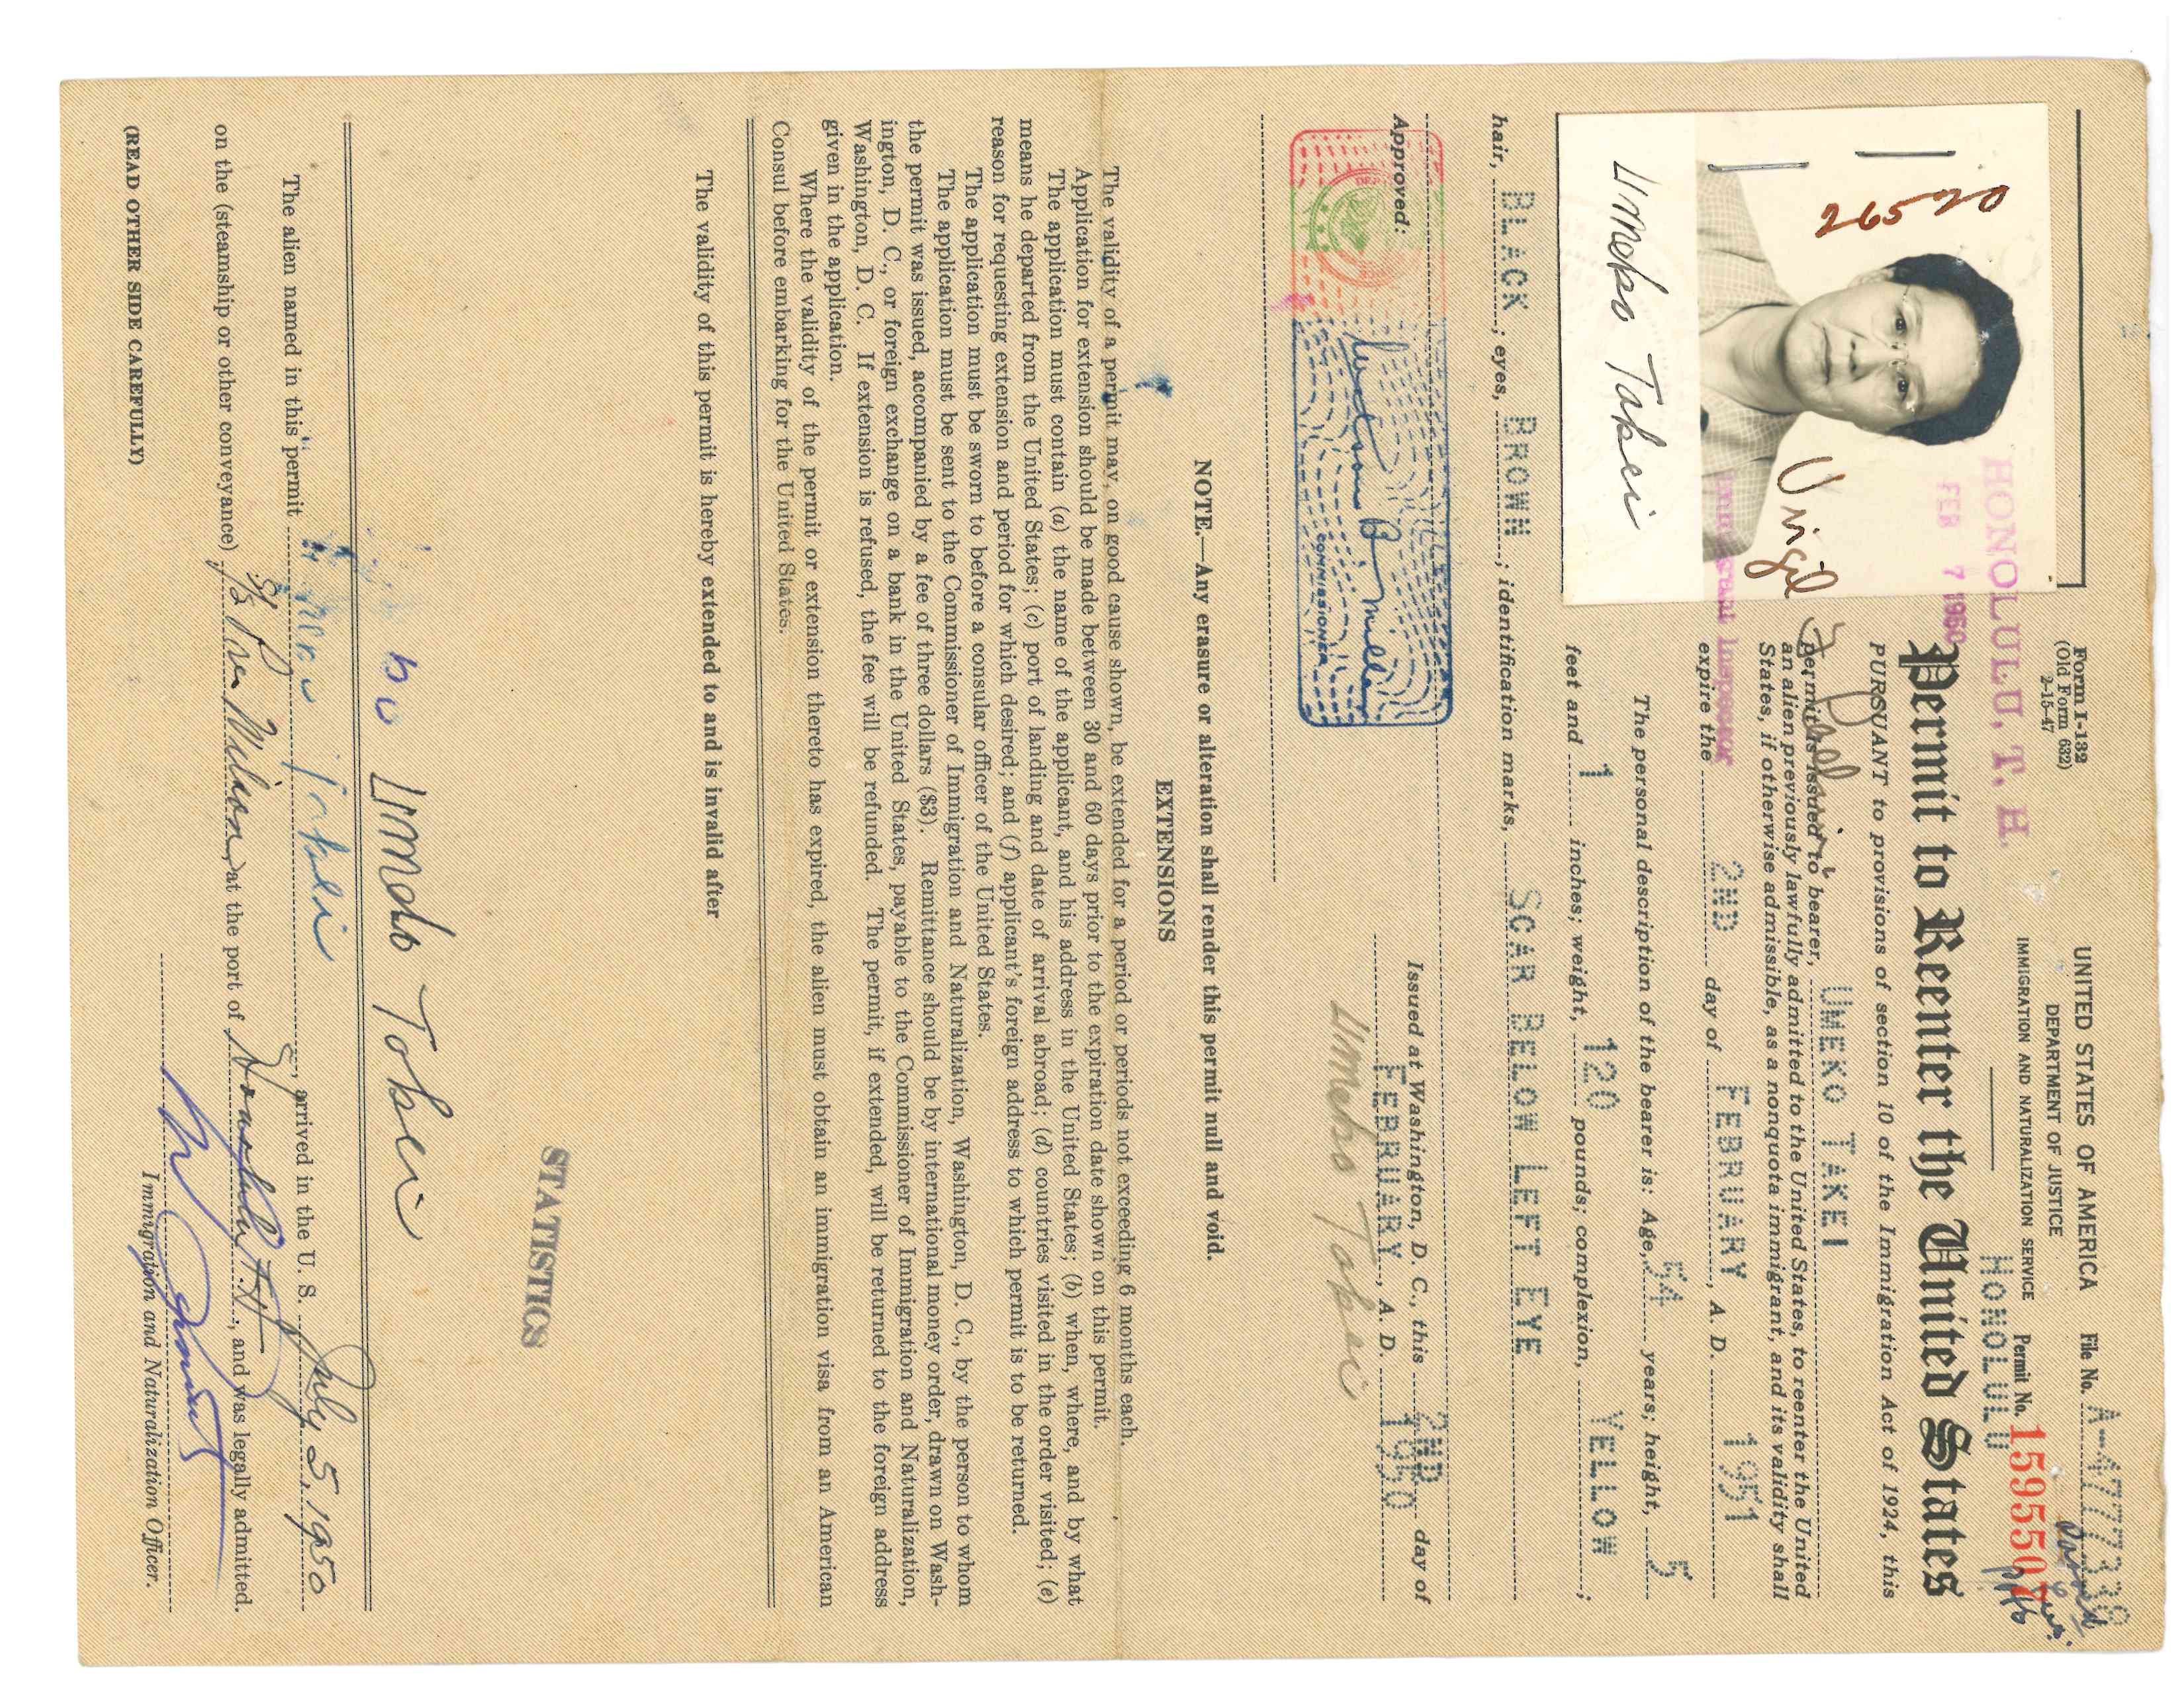 Form I-132
(Old Form 632)
2-15-47
UNITED STATES OF AMERICA
DEPARTMENT OF JUSTICE
IMMIGRATION AND NATURALIZATION SERVICE
File No. A-4777338
Passed
Permit No. 1595507
HONOLULU
HONOLULU, T. H.
FEB 7 1950
26520
Permit to Reenter the United States
PURSUANT to provisions of section 10 of the Immigration Act of 1924, this
permit is issued to bearer, UMEKO TAKEI
an alien previously lawfully admitted to the United States, to reenter the United
States, if otherwise admissible, as a nonquota immigrant, and its validity shall
expire the 2ND day of FEBRUARY, A. D. 1951
Virgil
Immigrant Inspector
Umeko Takei
The personal description of the bearer is: Age, 54 years; height, 5
feet and 1 inches; weight, 120 pounds; complexion, YELLOW;
hair, BLACK; eyes, BROWN; identification marks, SCAR BELOW LEFT EYE
Approved:
Watson B. Miller
COMMISSIONER
Issued at Washington, D. C., this 2ND day of
FEBRUARY, A. D. 1950
Umeko Takei
NOTE.—Any erasure or alteration shall render this permit null and void.
EXTENSIONS
The validity of a permit may, on good cause shown, be extended for a period or periods not exceeding 6 months each.
Application for extension should be made between 30 and 60 days prior to the expiration date shown on this permit.
The application must contain (a) the name of the applicant, and his address in the United States; (b) when, where, and by what
means he departed from the United States; (c) port of landing and date of arrival abroad; (d) countries visited in the order visited; (e)
reason for requesting extension and period for which desired; and (f) applicant's foreign address to which permit is to be returned.
The application must be sworn to before a consular officer of the United States.
The application must be sent to the Commissioner of Immigration and Naturalization, Washington, D. C., by the person to whom
the permit was issued, accompanied by a fee of three dollars ($3). Remittance should be by international money order, drawn on Wash-
ington, D. C., or foreign exchange on a bank in the United States, payable to the Commissioner of Immigration and Naturalization,
Washington, D. C. If extension is refused, the fee will be refunded. The permit, if extended, will be returned to the foreign address
given in the application.
Where the validity of the permit or extension thereto has expired, the alien must obtain an immigration visa from an American
Consul before embarking for the United States.
The validity of this permit is hereby extended to and is invalid after
STATISTICS
Umeko Takei
The alien named in this permit Umeko Takei, arrived in the U. S. July 5, 1950
on the (steamship or other conveyance) S/S Pres Wilson, at the port of Honolulu, T.H., and was legally admitted.
Immigration and Naturalization Officer.
(READ OTHER SIDE CAREFULLY)